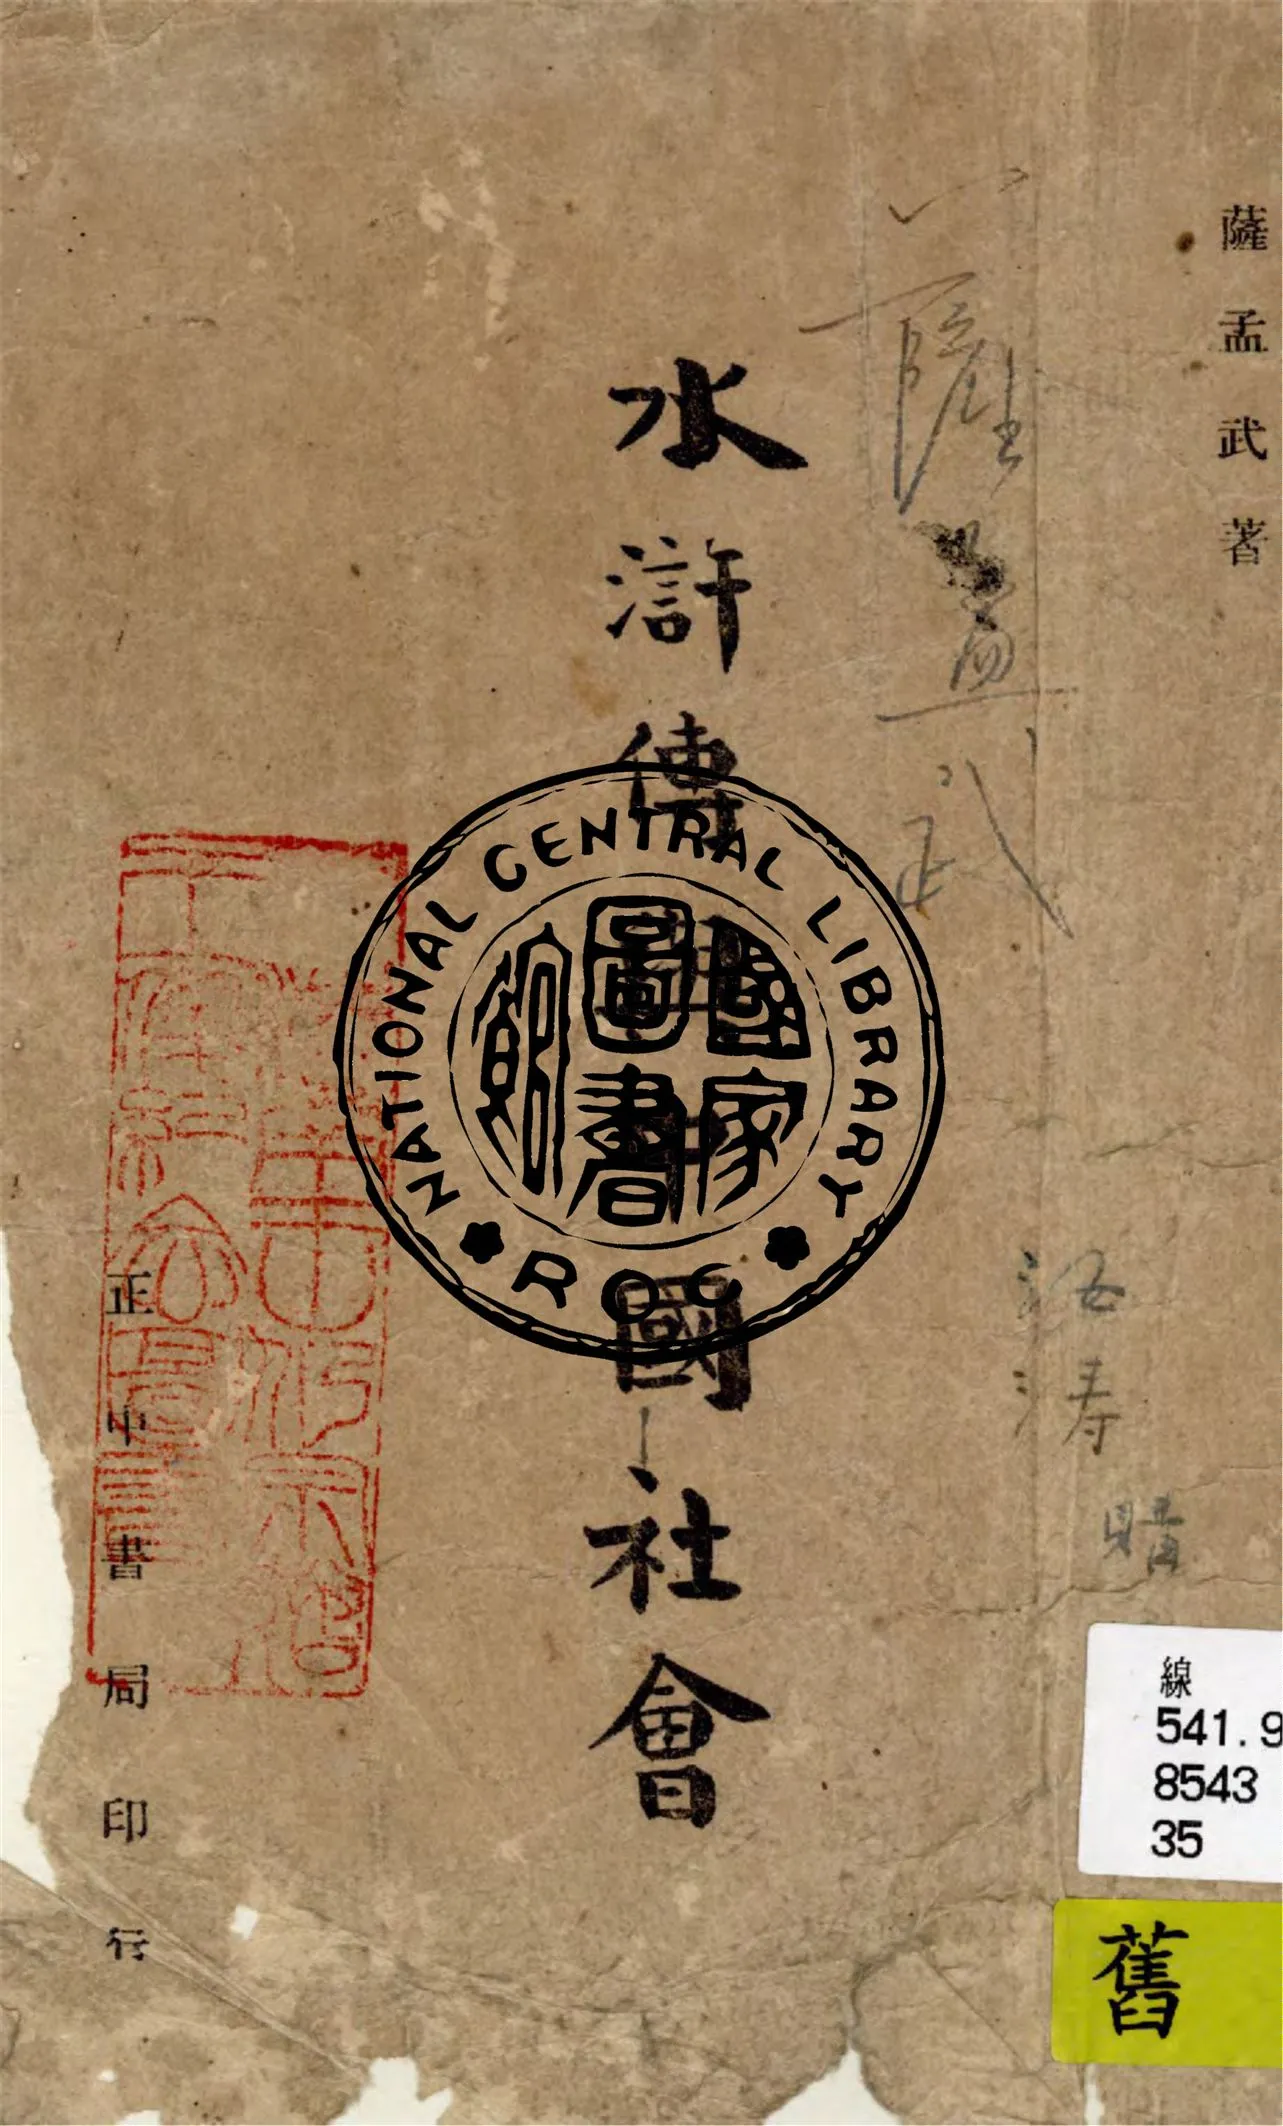 薩孟武著
薩孟武
洛涛
購
水滸傳與中國社會
正中書局印行
NATIONAL CENTRAL LIBRARY
ROC
國家圖書館
線
541.9
8543
35
舊